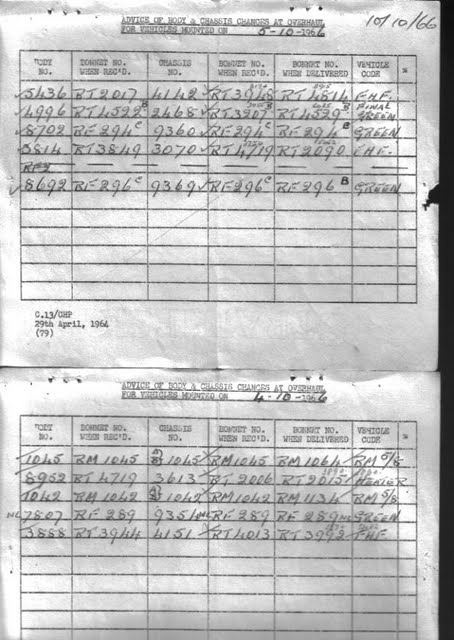 10/10/66
ADVICE OF BODY & CHASSIS CHANGES AT OVERHAUL
FOR VEHICLES MOUNTED ON 5-10-1966
BODY NO. BONNET NO. WHEN REC'D. CHASSIS NO. BONNET NO. WHEN REC'D. BONNET NO. WHEN DELIVERED VEHICLE CODE
5436 RT2017 4142 RT3948 RT4814 FHF.
4996 RT4522 B 2468 RT3207 RT4529 B FINAL GREEN
8702 RF294 C 9360 RF294 C RF294 B GREEN
3814 RT3849 3070 RT4719 RT2090 FHF.
RF2
8692 RF296 C 9369 RF296 C RF296 B GREEN
C.13/CHP
29th April, 1964
(79)
ADVICE OF BODY & CHASSIS CHANGES AT OVERHAUL
FOR VEHICLES MOUNTED ON 4-10-1966
BODY NO. BONNET NO. WHEN REC'D. CHASSIS NO. BONNET NO. WHEN REC'D. BONNET NO. WHEN DELIVERED VEHICLE CODE
1045 RM1045 1045 RM1045 RM1064 RM 5/8
8952 RT4719 3613 RT2006 RT2015
1042 RM1042 1042 RM1042 RM1134 RM 5/8
NL 7807 RF289 9351 RF289 RF289 GREEN
3888 RT3944 4151 RT4013 RT3992 FHF